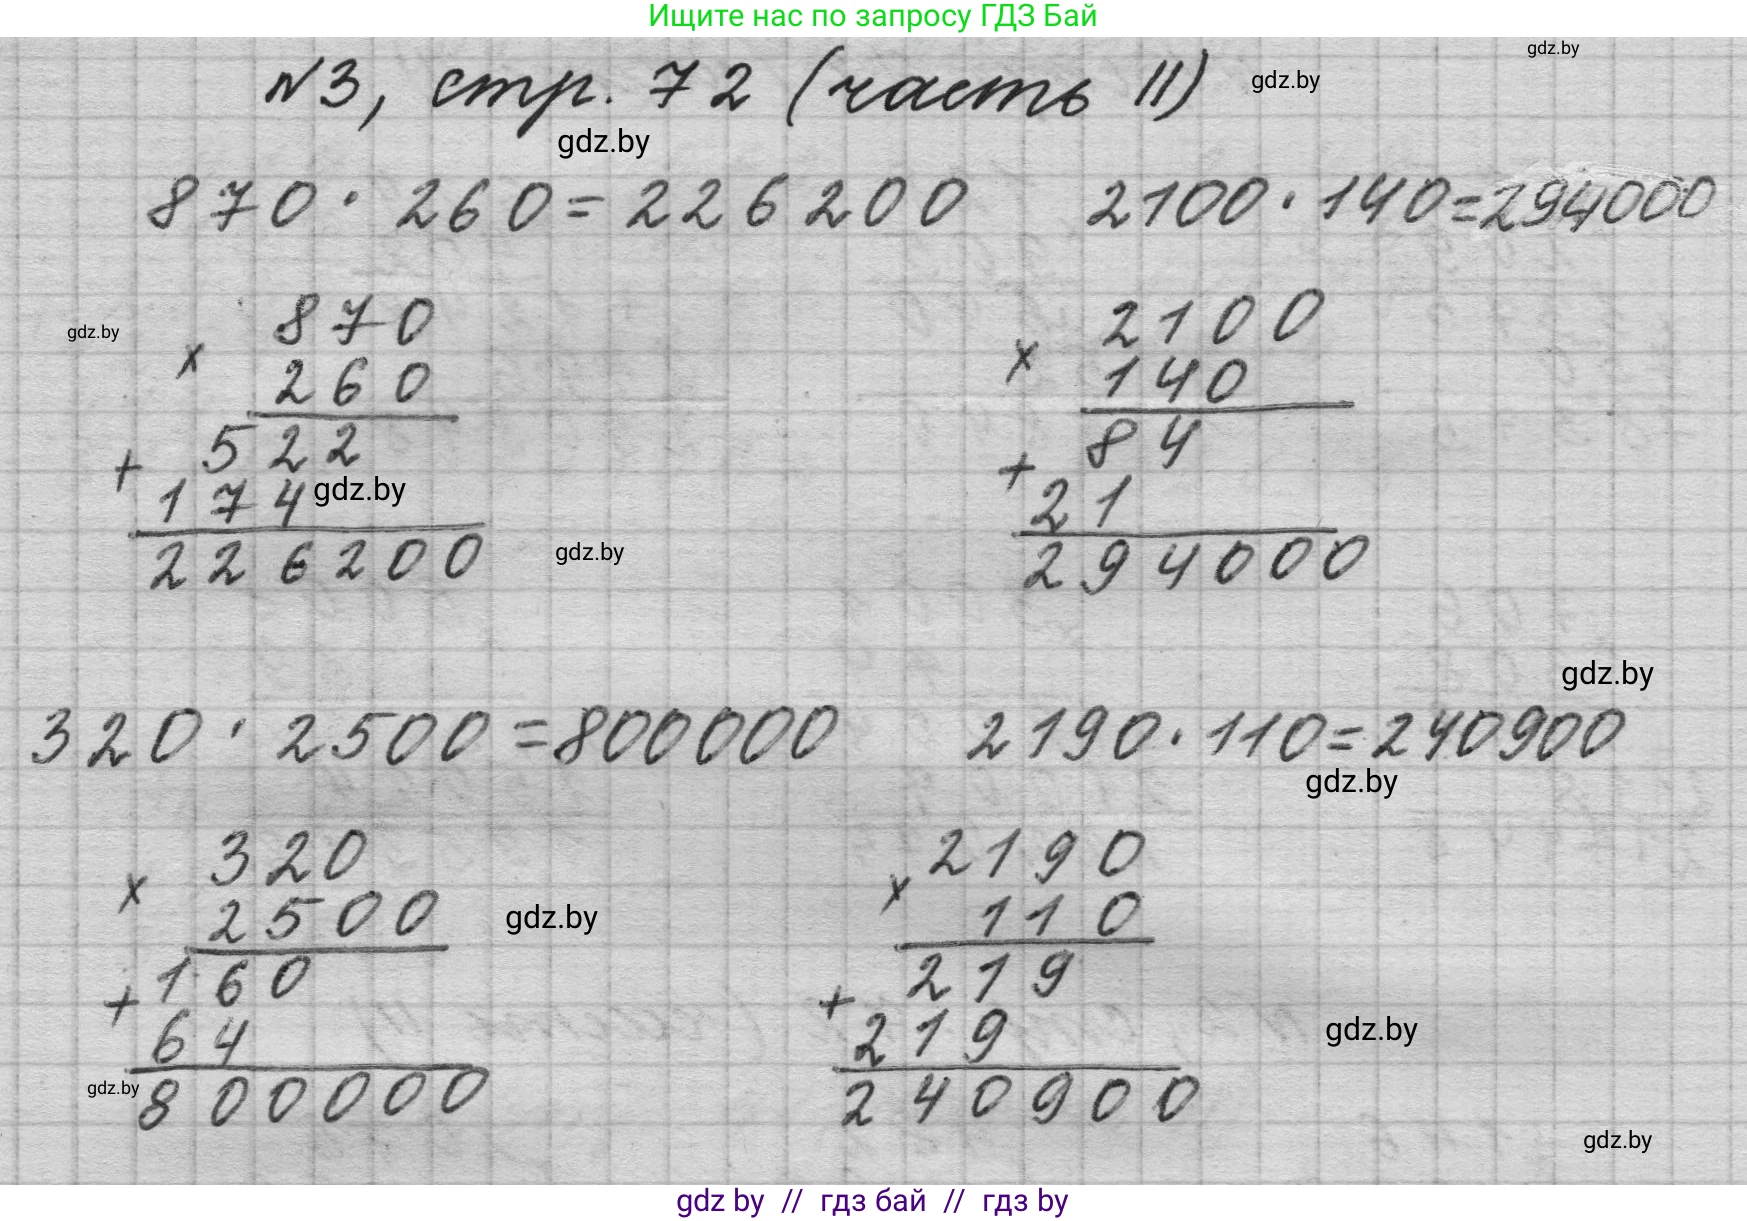 Ищите нас по запросу ГДЗ Бай
gdz.by
№3, стр. 72 (часть II)
gdz.by
gdz.by
870 · 260 = 226200 2100 · 140 = 294000
870 2100
gdz.by
× ×
260 140
522 84
+ +
174 21
gdz.by
226200 294000
gdz.by
gdz.by
320 · 2500 = 800000 2190 · 110 = 240900
gdz.by
320 2190
× ×
2500 110
gdz.by
160 219
+ +
64 219
gdz.by
800000 240900
gdz.by
gdz.by
gdz by // гдз бай // гдз by